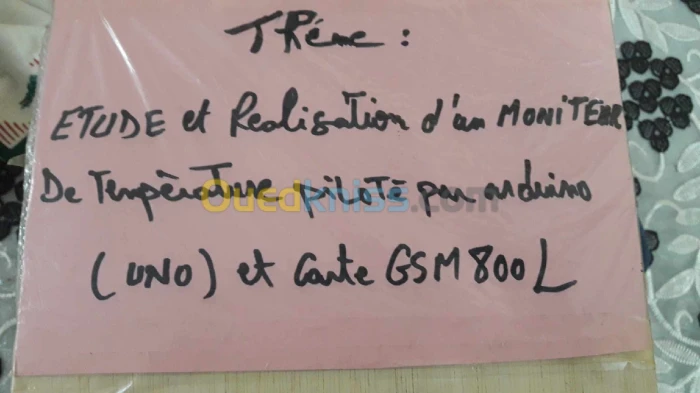 Thème :
ETUDE et Realisation d'un MONITEUR
De Température piloté par arduino
(UNO) et Carte GSM 800 L
Ouedkniss.com